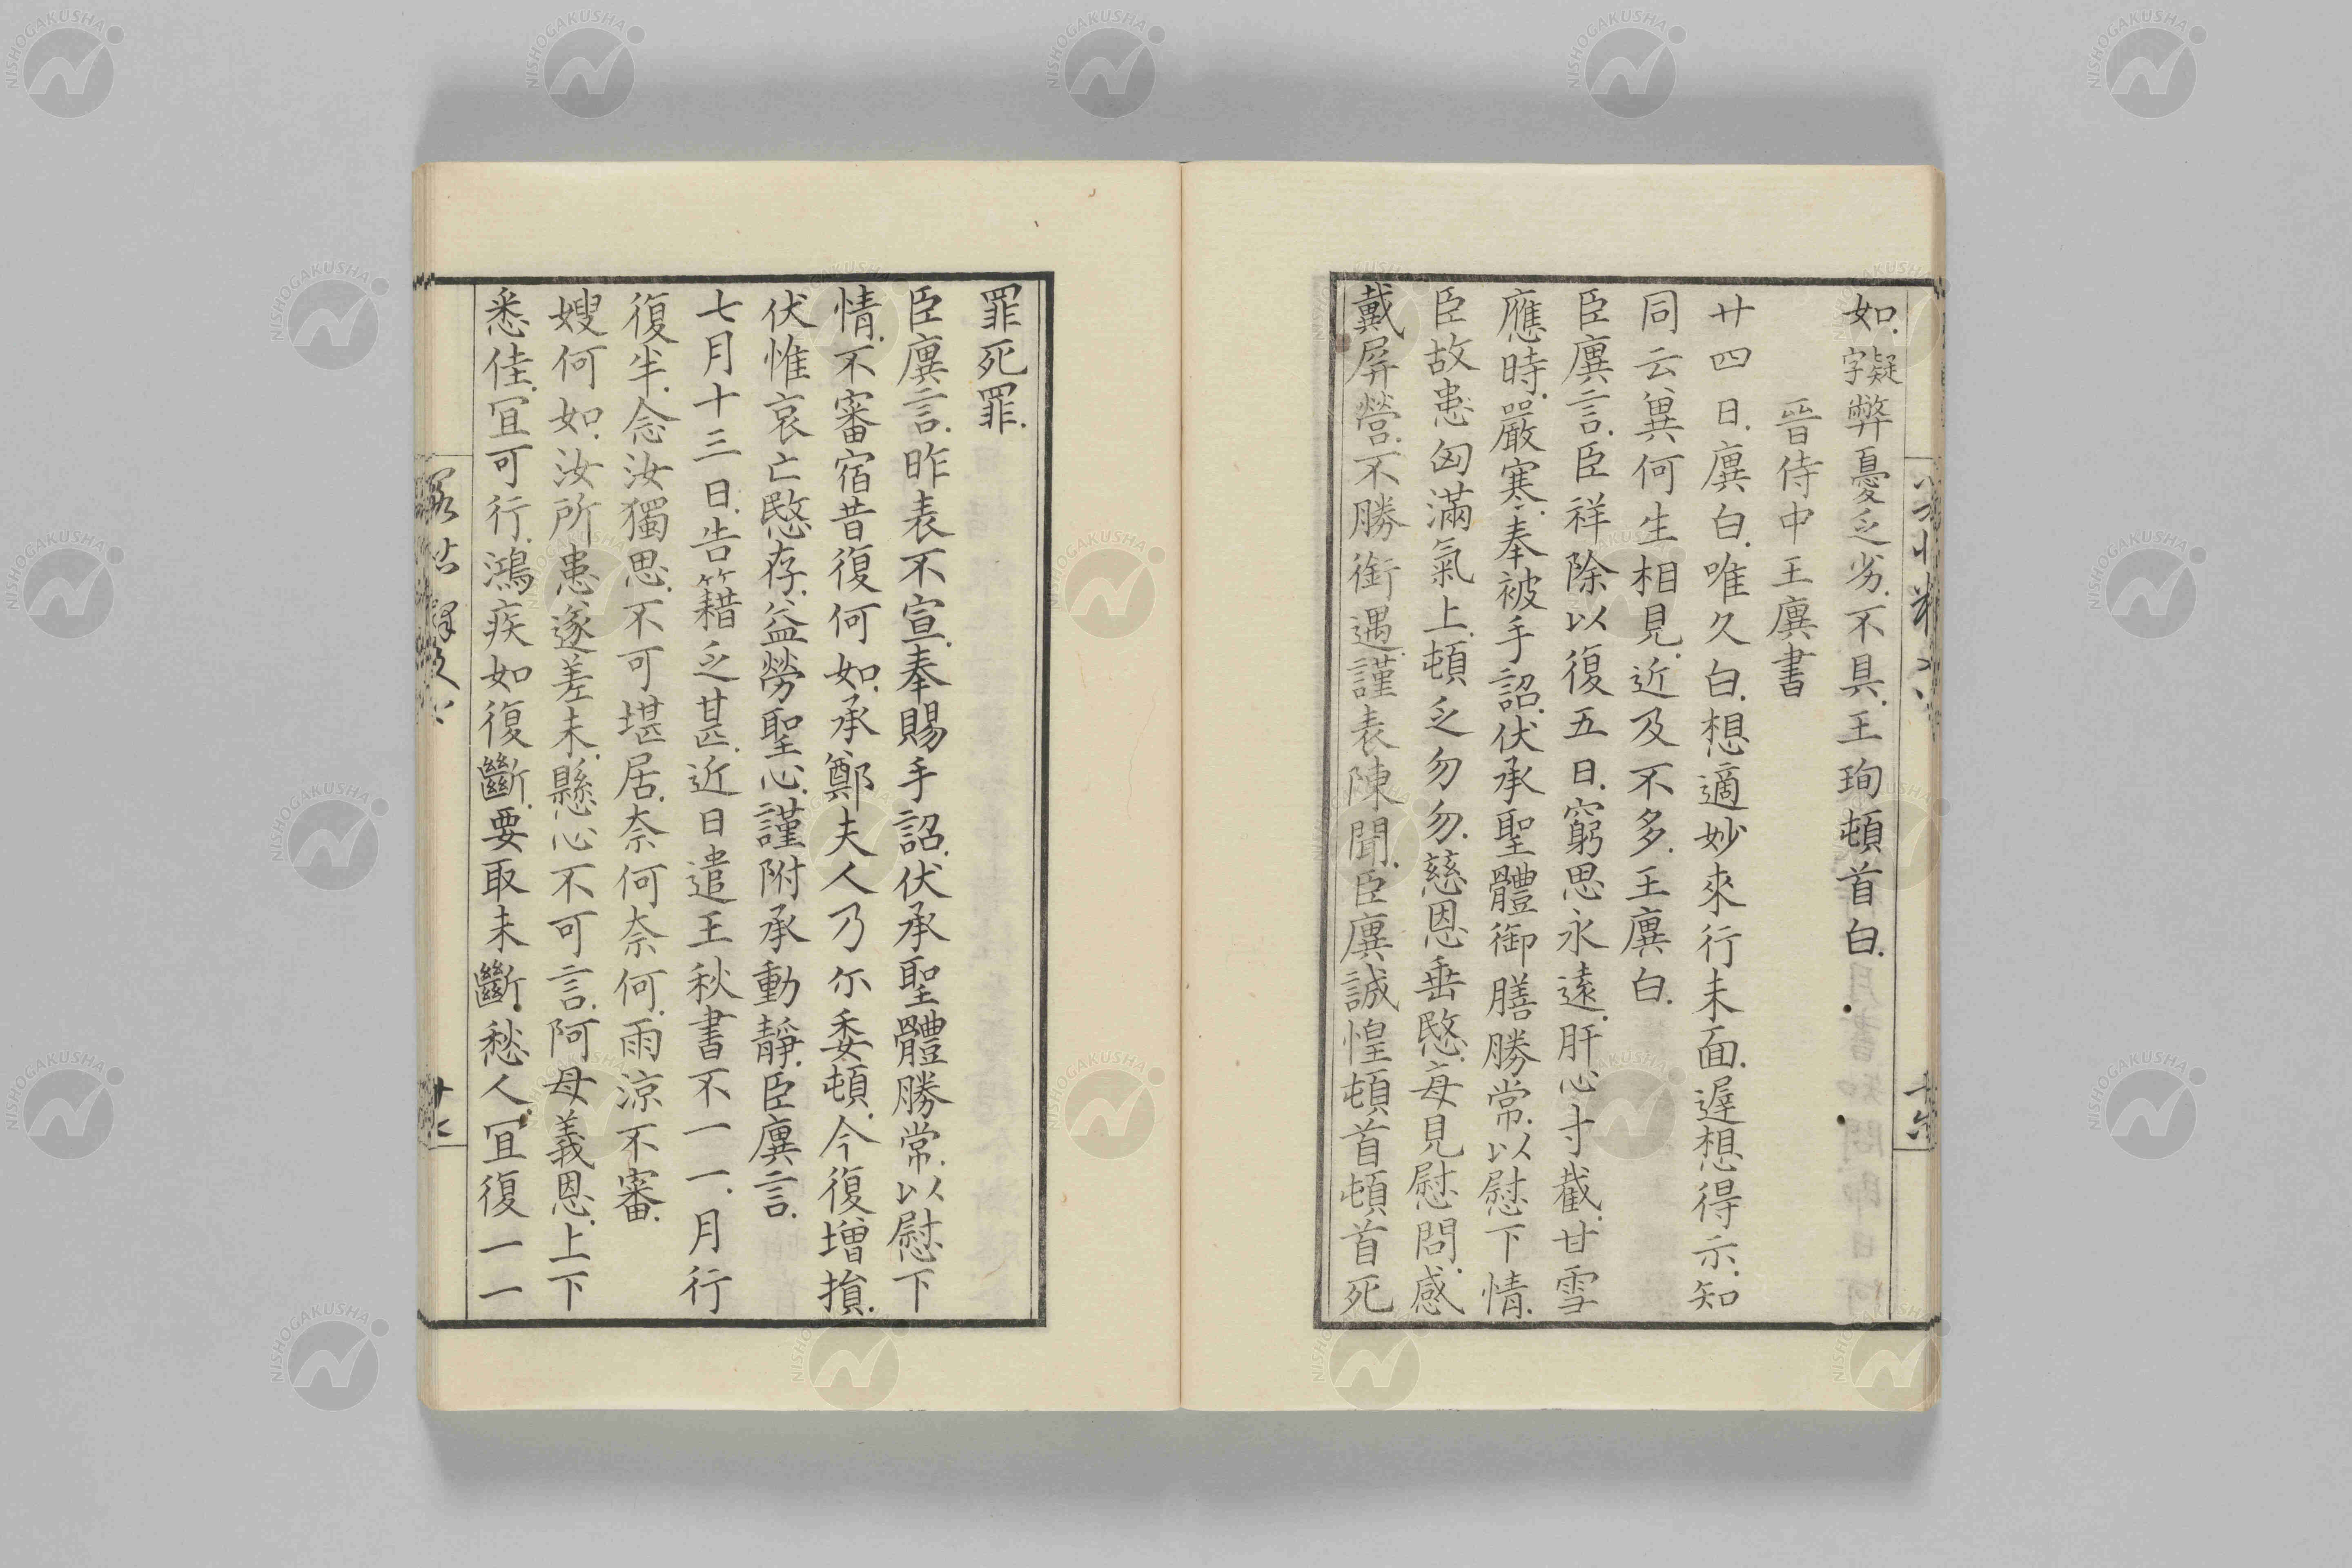 如.擬字弊憂乏劣.不具.王珣頓首白.
晉侍中王廙書
廿四日.廙白.唯久白.想適妙來行未面.遲想得示.知
同云.異何生相見.近及不多.王廙白.
臣廙言.臣祥除以復五日.窮思永遠.肝心寸截.甘雪
應時.嚴寒.奉被手詔.伏承聖體御膳勝常.以慰下情.
臣故患匈滿氣上.頓乏勿勿.慈恩垂愍.每見慰問.感
戴屏營.不勝銜遇.謹表陳聞.臣廙誠惶頓首頓首死
罪死罪.
臣廙言.昨表不宣.奉賜手詔.伏承聖體勝常.以慰下
情.不審宿昔復何如.承鄭夫人乃尓委頓.今復增損.
伏惟哀亡愍存.益勞聖心.謹附承動靜.臣廙言.
七月十三日.告籍乏甚.近日遣王秋書不一一.月行
復半.念汝獨思.不可堪居.奈何奈何.雨涼不審.
嫂何如.汝所患遂差未.懸心不可言.阿母義恩.上下
悉佳.宜可行.鴻疾如復斷.要取未斷.愁人宜復一一
NISHOGAKUSHA